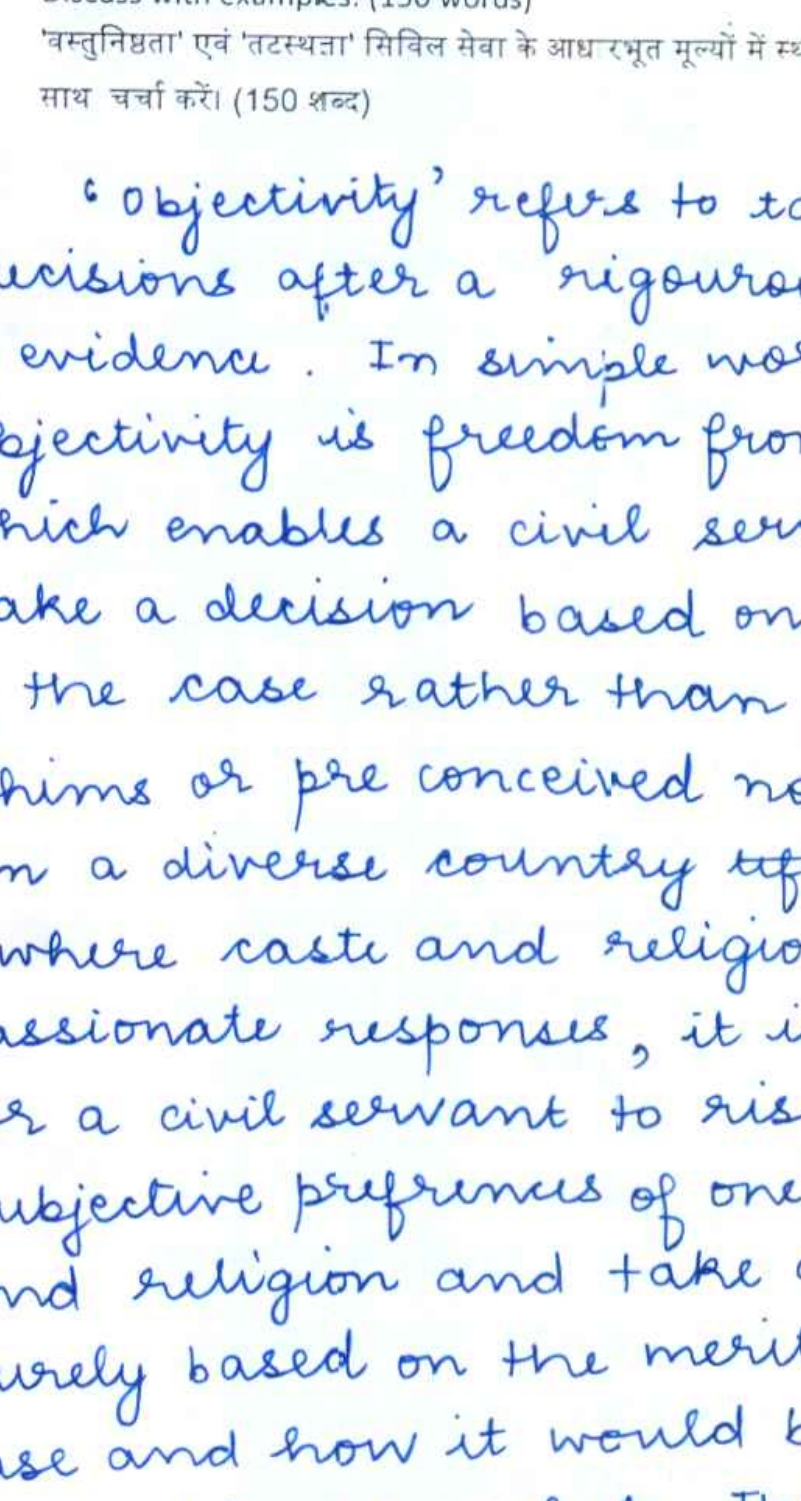 Discuss with examples. (150 words)
'वस्तुनिष्ठता' एवं 'तटस्थता' सिविल सेवा के आधारभूत मूल्यों में स्थ
साथ चर्चा करें। (150 शब्द)
' Objectivity' refers to ta
ecisions after a rigourou
evidence. In simple wor
bjectivity is freedom from
hich enables a civil serv
ake a decision based on
the case rather than
hims or pre conceived no
n a diverse country
where caste and religio
assionate responses, it i
r a civil servant to ris
ubjective prefrences of one
nd religion and take
urely based on the merit
ase and how it would b